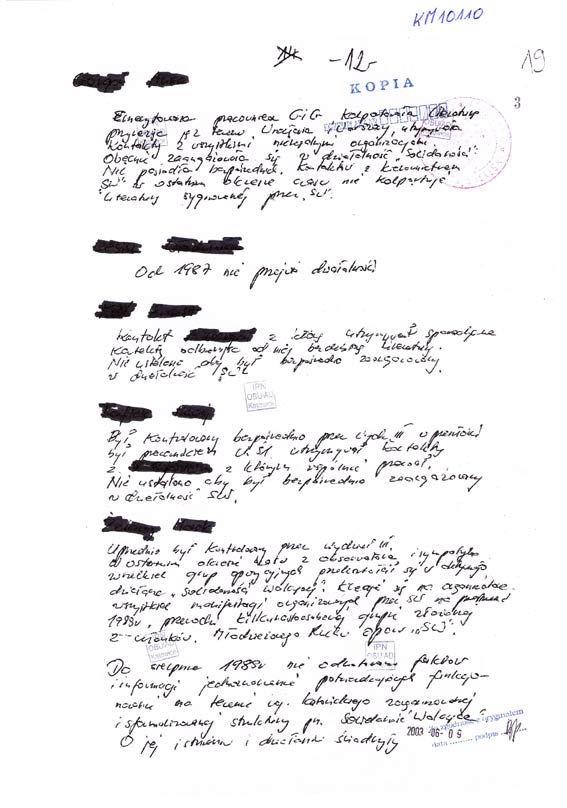 KM10110
-12-
19
KOPIA
3
Emerytowana pracownica GiG kolportowała literaturę
przywożąc ją z terenu Wrocławia i Warszawy, utrzymywała
kontakty z wszystkimi nielegalnymi organizacjami.
Obecnie zaangażowała się w działalność "Solidarność"
Nie posiada bezpośrednich kontaktów z kierownictwem
"SW" w ostatnim okresie czasu nie kolportuje
literatury sygnowanej przez "SW".
Od 1987 nie przejawia działalności
Kontakt z utrzymywał sporadyczne
kontakty odbierając od niej bezdebitową literaturę.
Nie ustalono aby był bezpośrednio zaangażowany
w działalność "SW"
IPN
OBUiAD
Katowice
Był kontrolowany bezpośrednio przez Wydz. III w przeszłości
był pracownikiem U.Śl. utrzymywał kontakty
z z którym wspólnie pracował.
Nie ustalono aby był bezpośrednio zaangażowany
w działalność SW.
Uprzednio był kontrolowany przez wydział III.
W ostatnim okresie czasu z obserwatora i sympatyka
wszelkich grup opozycyjnych przekształcił się w aktywnego
działacza "Solidarności Walczącej". Włączył się na
wszystkie manifestacje organizowane przez SW na przełomie
1988r, przewodził kilkunastoosobowej grupie złożonej
z członków Młodzieżowego Ruchu Oporu "SW".
OBUiAD
Katowice
IPN
OBUiAD
Do sierpnia 1985r nie odnotowano faktów
i informacji jednoznacznie potwierdzających funkcjo-
nowanie na terenie woj. katowickiego zorganizowanej
i sformalizowanej struktury pn. Solidarność Walcząca"
O jej istnieniu i działaniu świadczyły
za zgodność z oryginałem
2003 -06- 09
data podpis